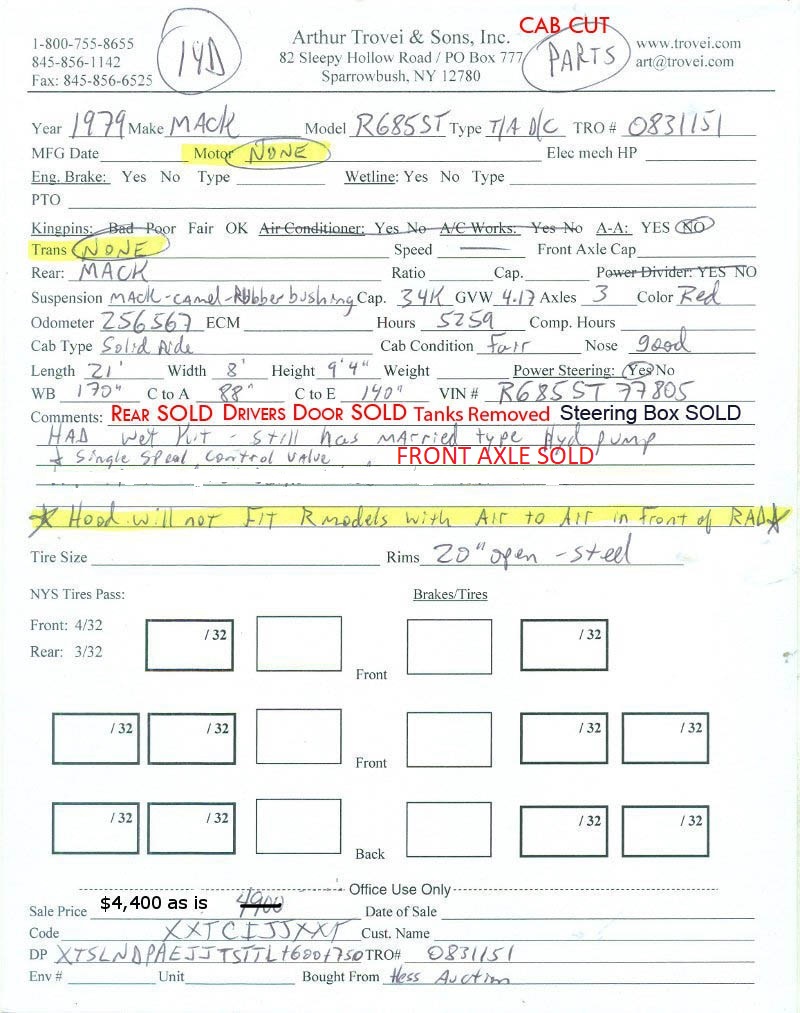 CAB CUT
1-800-755-8655
845-856-1142
Fax: 845-856-6525
14D
Arthur Trovei & Sons, Inc.
82 Sleepy Hollow Road / PO Box 777
Sparrowbush, NY 12780
PARTS
www.trovei.com
art@trovei.com
Year 1979 Make MACK Model R685ST Type T/A D/C TRO # 0831151
MFG Date Motor NONE Elec mech HP
Eng. Brake: Yes No Type Wetline: Yes No Type
PTO
Kingpins: Bad Poor Fair OK Air Conditioner: Yes No A/C Works: Yes No A-A: YES NO
Trans NONE Speed — Front Axle Cap
Rear: MACK Ratio Cap. Power Divider: YES NO
Suspension MACK-camel-Rubber bushing Cap. 34K GVW 4.17 Axles 3 Color Red
Odometer 256567 ECM Hours 5259 Comp. Hours
Cab Type Solid Ride Cab Condition Fair Nose good
Length 21' Width 8' Height 9'4" Weight Power Steering: Yes No
WB 170" C to A 88" C to E 140" VIN # R685ST 77805
Comments: REAR SOLD DRIVERS DOOR SOLD Tanks Removed Steering Box SOLD
HAD Wet Kit - still has married type Hyd pump
+ Single Speed Control Valve FRONT AXLE SOLD
* Hood will not FIT R models with Air to Air in Front of RAD *
Tire Size Rims 20" open - steel
NYS Tires Pass: Brakes/Tires
Front: 4/32
Rear: 3/32
/ 32 / 32
Front
/ 32 / 32 / 32 / 32
Front
/ 32 / 32 / 32 / 32
Back
Office Use Only
Sale Price $4,400 as is 4900 Date of Sale
Code XXTCIJJXXT Cust. Name
DP XTSLNDPAEJJTSTTL+600+750 TRO# 0831151
Env # Unit Bought From Hess Auction